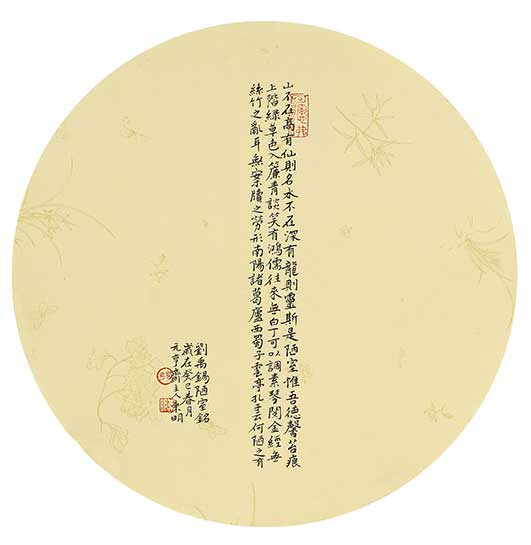 山不在高有仙則名水不在深有龍則靈斯是陋室惟吾德馨苔痕
上階綠草色入簾青談笑有鴻儒往來無白丁可以調素琴閱金經無
絲竹之亂耳無案牘之勞形南陽諸葛廬西蜀子雲亭孔云何陋之有
劉禹錫陋室銘
歲在癸巳春月
元亨齋主人景明